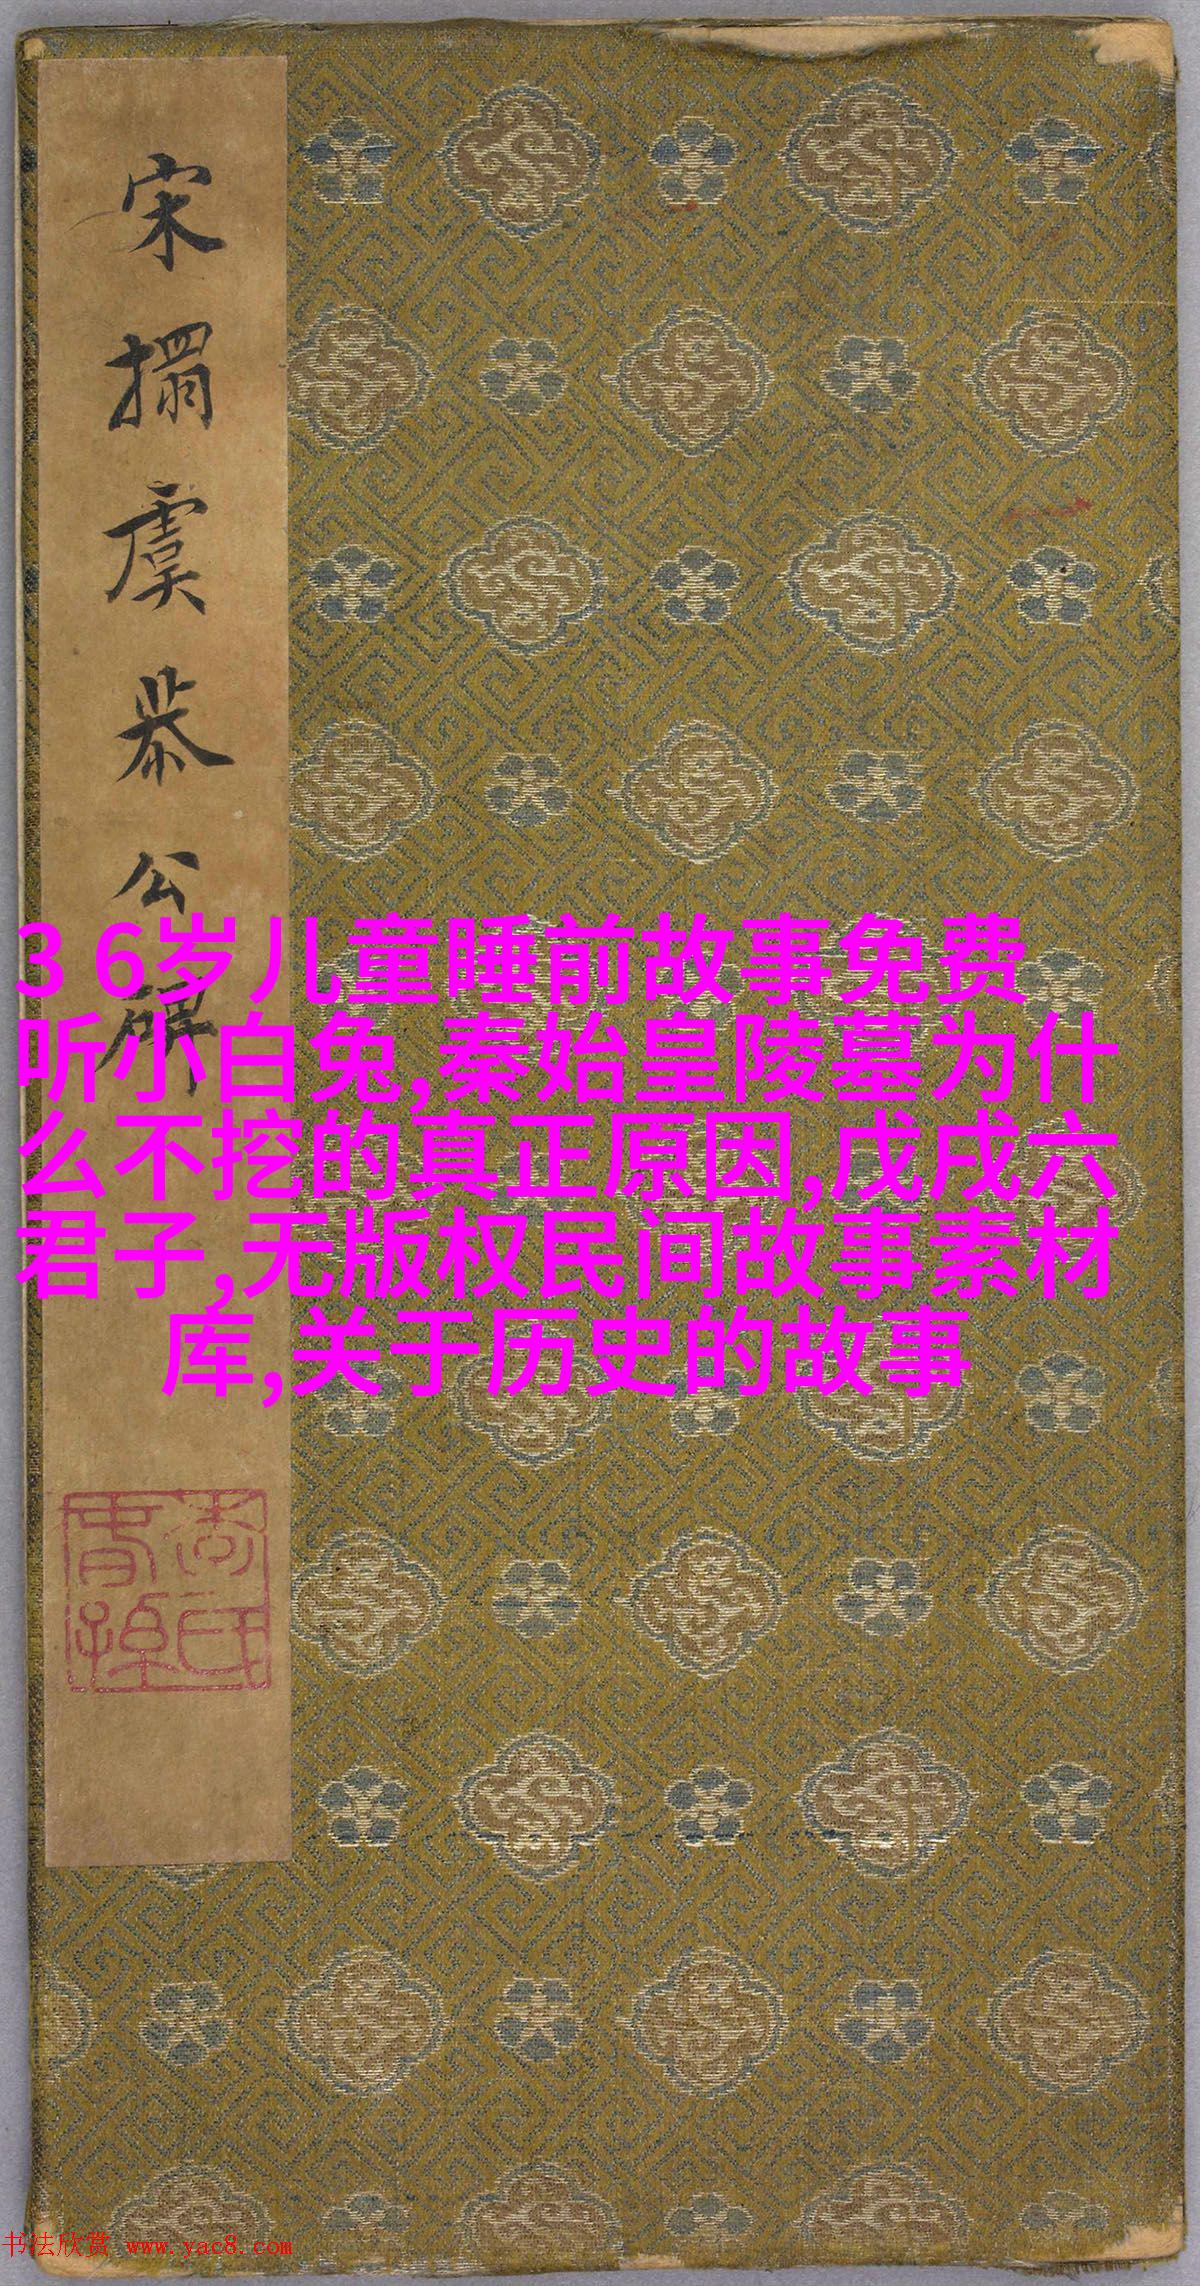 宋搨虞恭公碑
3 6岁儿童睡前故事免费
听小白兔,秦始皇陵墓为什
么不挖的真正原因,戊戌六
君子,无版权民间故事素材
库,关于历史的故事
书法欣赏 www.yac8.com